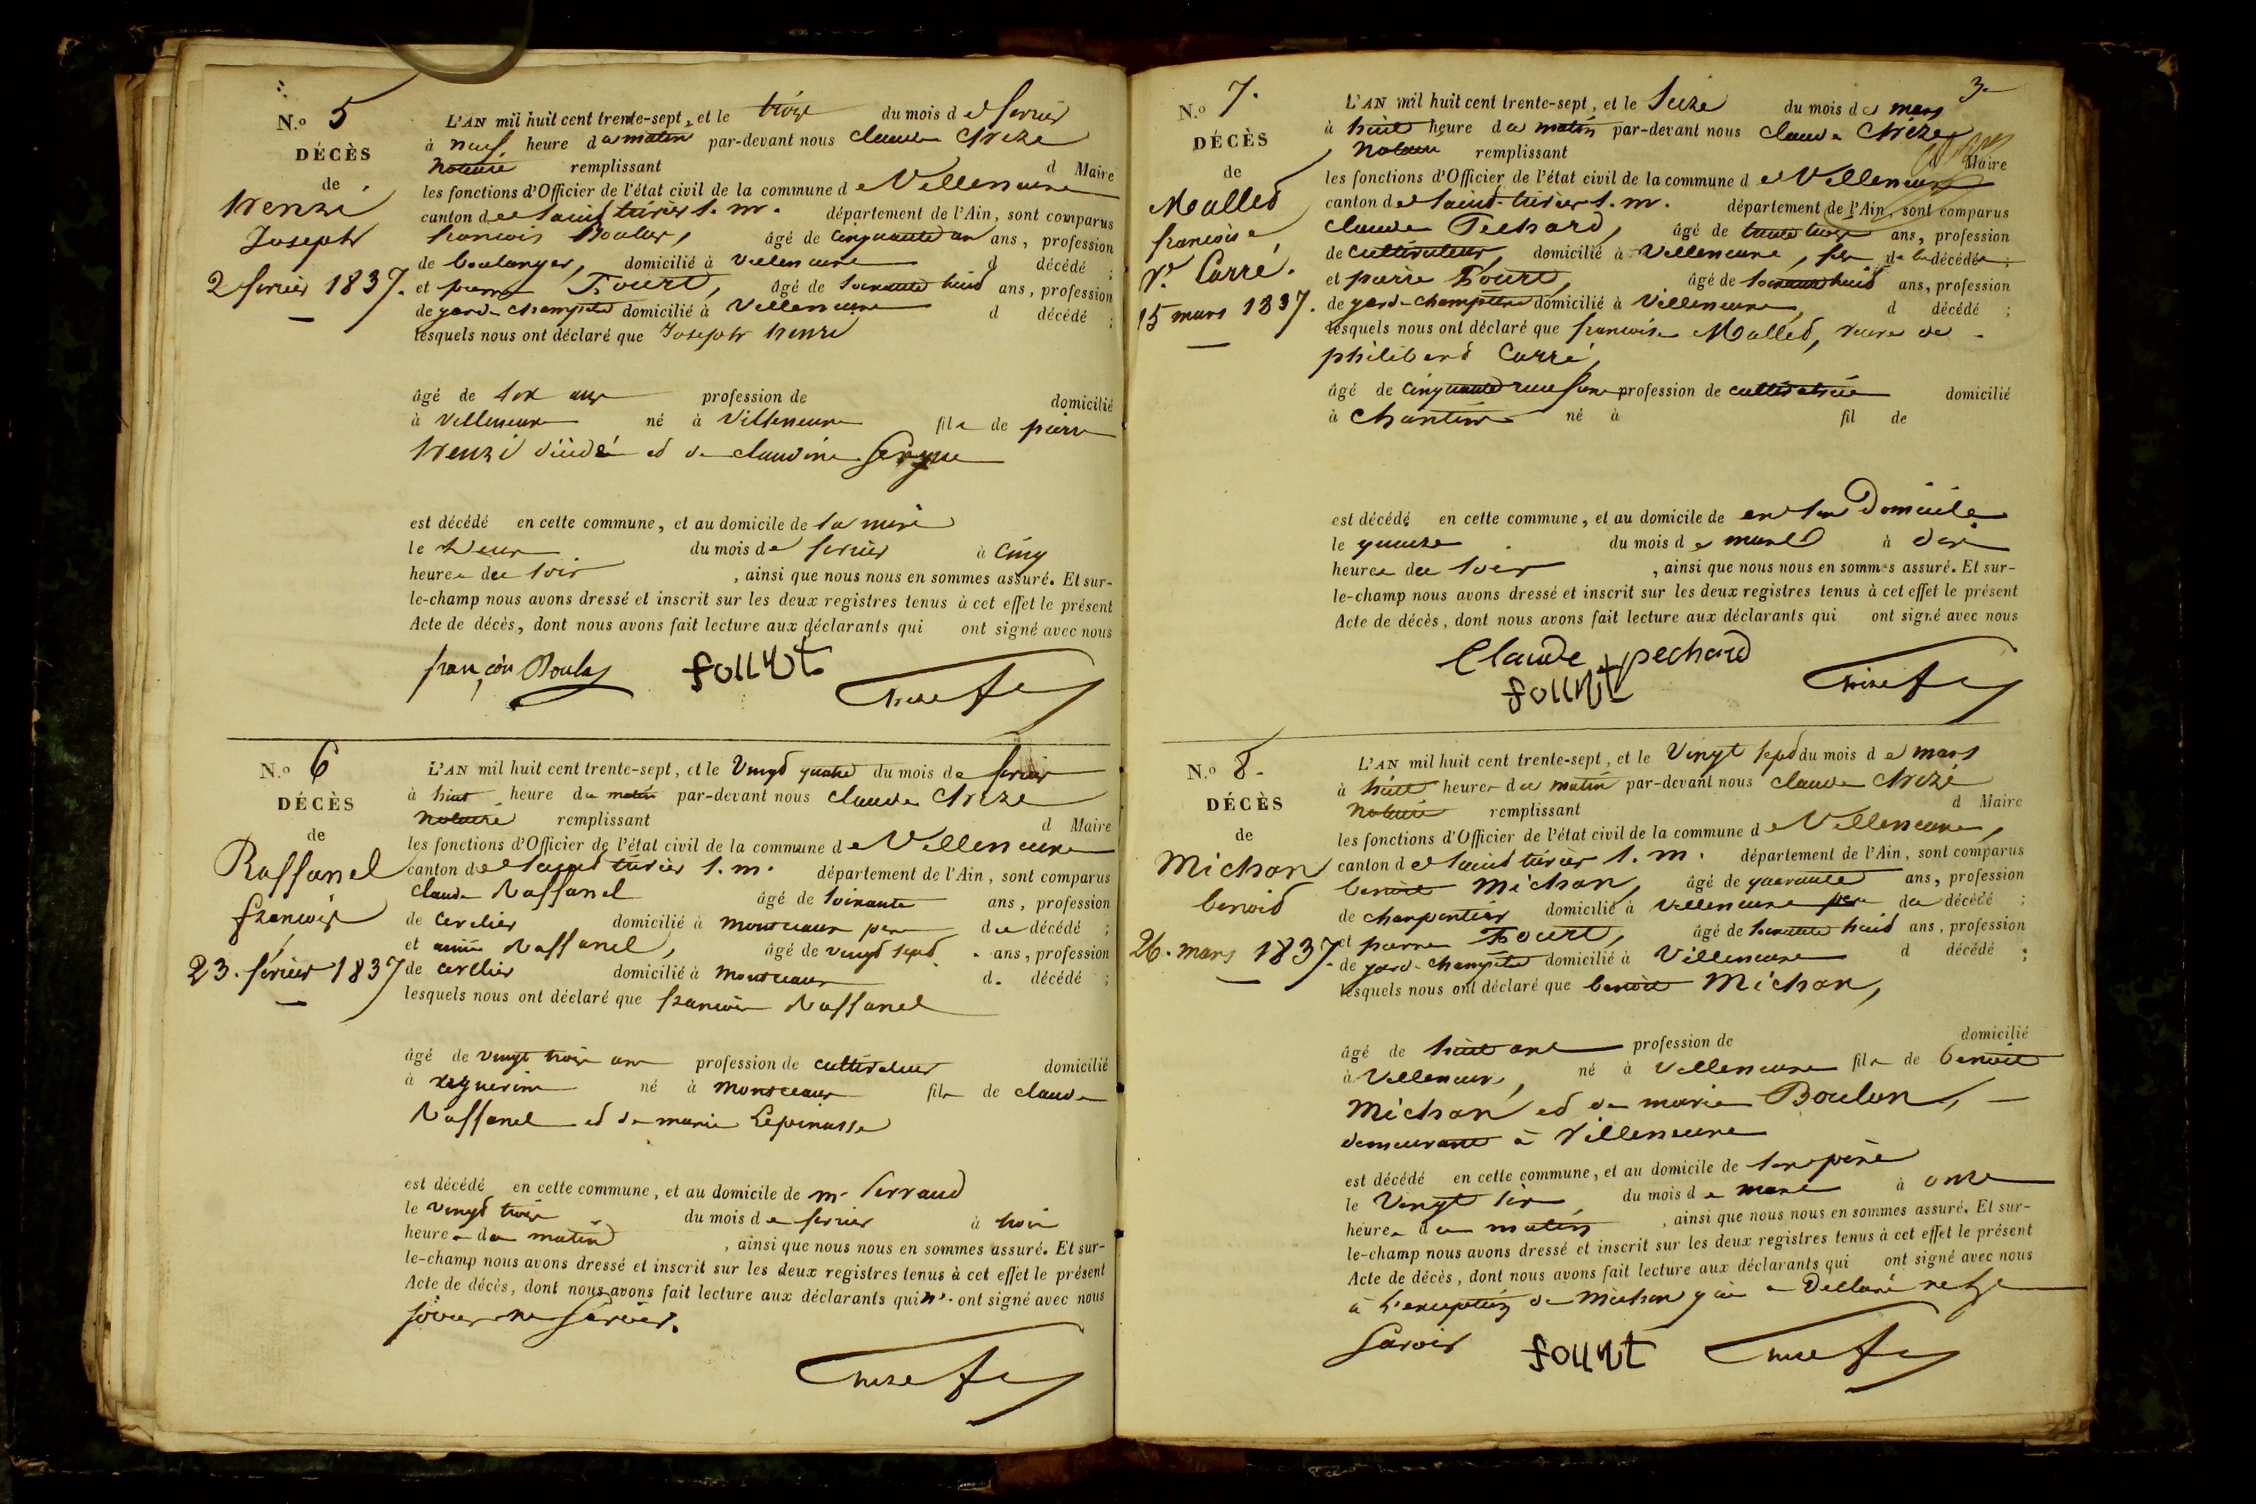 N.o 5
DÉCÈS
de
henri
Joseph
2 fevrier 1837.
L'AN mil huit cent trente-sept, et le trois du mois de fevrier
à neuf heure du matin par-devant nous Claude Chize
Notaire remplissant d Maire
les fonctions d'Officier de l'état civil de la commune de Villeneuve
canton de Saint trivier s. m. département de l'Ain, sont comparus
francois Boulas, âgé de cinquante un ans, profession
de boulanger, domicilié à Villeneuve d décédé ;
et pierre Fourt, âgé de soixante huit ans, profession
de garde champetre domicilié à Villeneuve d décédé ;
lesquels nous ont déclaré que Joseph henri
âgé de six ans profession de domicilié
à Villeneuve né à Villeneuve fils de pierre
henri décédé et de claudine
est décédé en cette commune, et au domicile de sa mere
le deux du mois de fevrier à cinq
heures du soir , ainsi que nous nous en sommes assuré. Et sur-
le-champ nous avons dressé et inscrit sur les deux registres tenus à cet effet le présent
Acte de décès, dont nous avons fait lecture aux déclarants qui ont signé avec nous
françois Boulas
N.o 6
DÉCÈS
de
Raffanel
françois
23. février 1837
L'AN mil huit cent trente-sept, et le Vingt quatre du mois de fevrier
à huit heure du matin par-devant nous Claude Chize
Notaire remplissant d Maire
les fonctions d'Officier de l'état civil de la commune de Villeneuve
canton de Saint trivier s. m. département de l'Ain, sont comparus
Claude Raffanel âgé de soixante ans, profession
de cerclier domicilié à monceaux pere du décédé ;
et aimé Raffanel, âgé de vingt sept ans, profession
de cerclier domicilié à monceaux d. décédé ;
lesquels nous ont déclaré que francois Raffanel
âgé de vingt trois ans profession de cultivateur domicilié
à né à monceaux fils de claude
Raffanel et de marie Lepinasse
est décédé en cette commune, et au domicile de mr ferraud
le vingt trois du mois de fevrier à trois
heures du matin , ainsi que nous nous en sommes assuré. Et sur-
le-champ nous avons dressé et inscrit sur les deux registres tenus à cet effet le présent
Acte de décès, dont nous avons fait lecture aux déclarants qui n'ont signé avec nous
pour ne savoir.
3
N.o 7.
DÉCÈS
de
Mallet
francoise
Ve Carré.
15 mars 1837.
L'AN mil huit cent trente-sept, et le Seize du mois de mars
à huit heure du matin par-devant nous Claude Chize
Notaire remplissant d Maire
les fonctions d'Officier de l'état civil de la commune de Villeneuve
canton de Saint trivier s. m. département de l'Ain, sont comparus
Claude Pechard, âgé de trente trois ans, profession
de cultivateur, domicilié à Villeneuve, de la décédée ;
et pierre Fourt, âgé de soixante huit ans, profession
de garde champetre domicilié à Villeneuve, d décédé ;
lesquels nous ont déclaré que francoise Mallet, veuve de
philibert Carré,
âgé de cinquante neuf ans profession de cultivatrice domicilié
à né à fil de
est décédé en cette commune, et au domicile de en son Domicile
le quinze du mois de mars à dix
heures du soir , ainsi que nous nous en sommes assuré. Et sur-
le-champ nous avons dressé et inscrit sur les deux registres tenus à cet effet le présent
Acte de décès, dont nous avons fait lecture aux déclarants qui ont signé avec nous
Claude pechard
N.o 8.
DÉCÈS
de
Michon
benoit
26. mars 1837.
L'AN mil huit cent trente-sept, et le Vingt sept du mois de mars
à huit heures du matin par-devant nous Claude Chize
Notaire remplissant d Maire
les fonctions d'Officier de l'état civil de la commune de Villeneuve,
canton de Saint trivier s. m. département de l'Ain, sont comparus
benoit Michon, âgé de quarante ans, profession
de charpentier domicilié à Villeneuve pere du décédé ;
et pierre Fourt, âgé de soixante huit ans, profession
de garde champetre domicilié à Villeneuve d décédé ;
lesquels nous ont déclaré que benoit Michon,
âgé de huit ans profession de domicilié
à Villeneuve, né à Villeneuve fils de benoit
Michon et de marie Boulon,
demeurant à Villeneuve
est décédé en cette commune, et au domicile de son père
le Vingt six du mois de mars à onze
heures du matin , ainsi que nous nous en sommes assuré. Et sur-
le-champ nous avons dressé et inscrit sur les deux registres tenus à cet effet le présent
Acte de décès, dont nous avons fait lecture aux déclarants qui ont signé avec nous
à l'exception de Michon qui a Déclaré ne le
Savoir